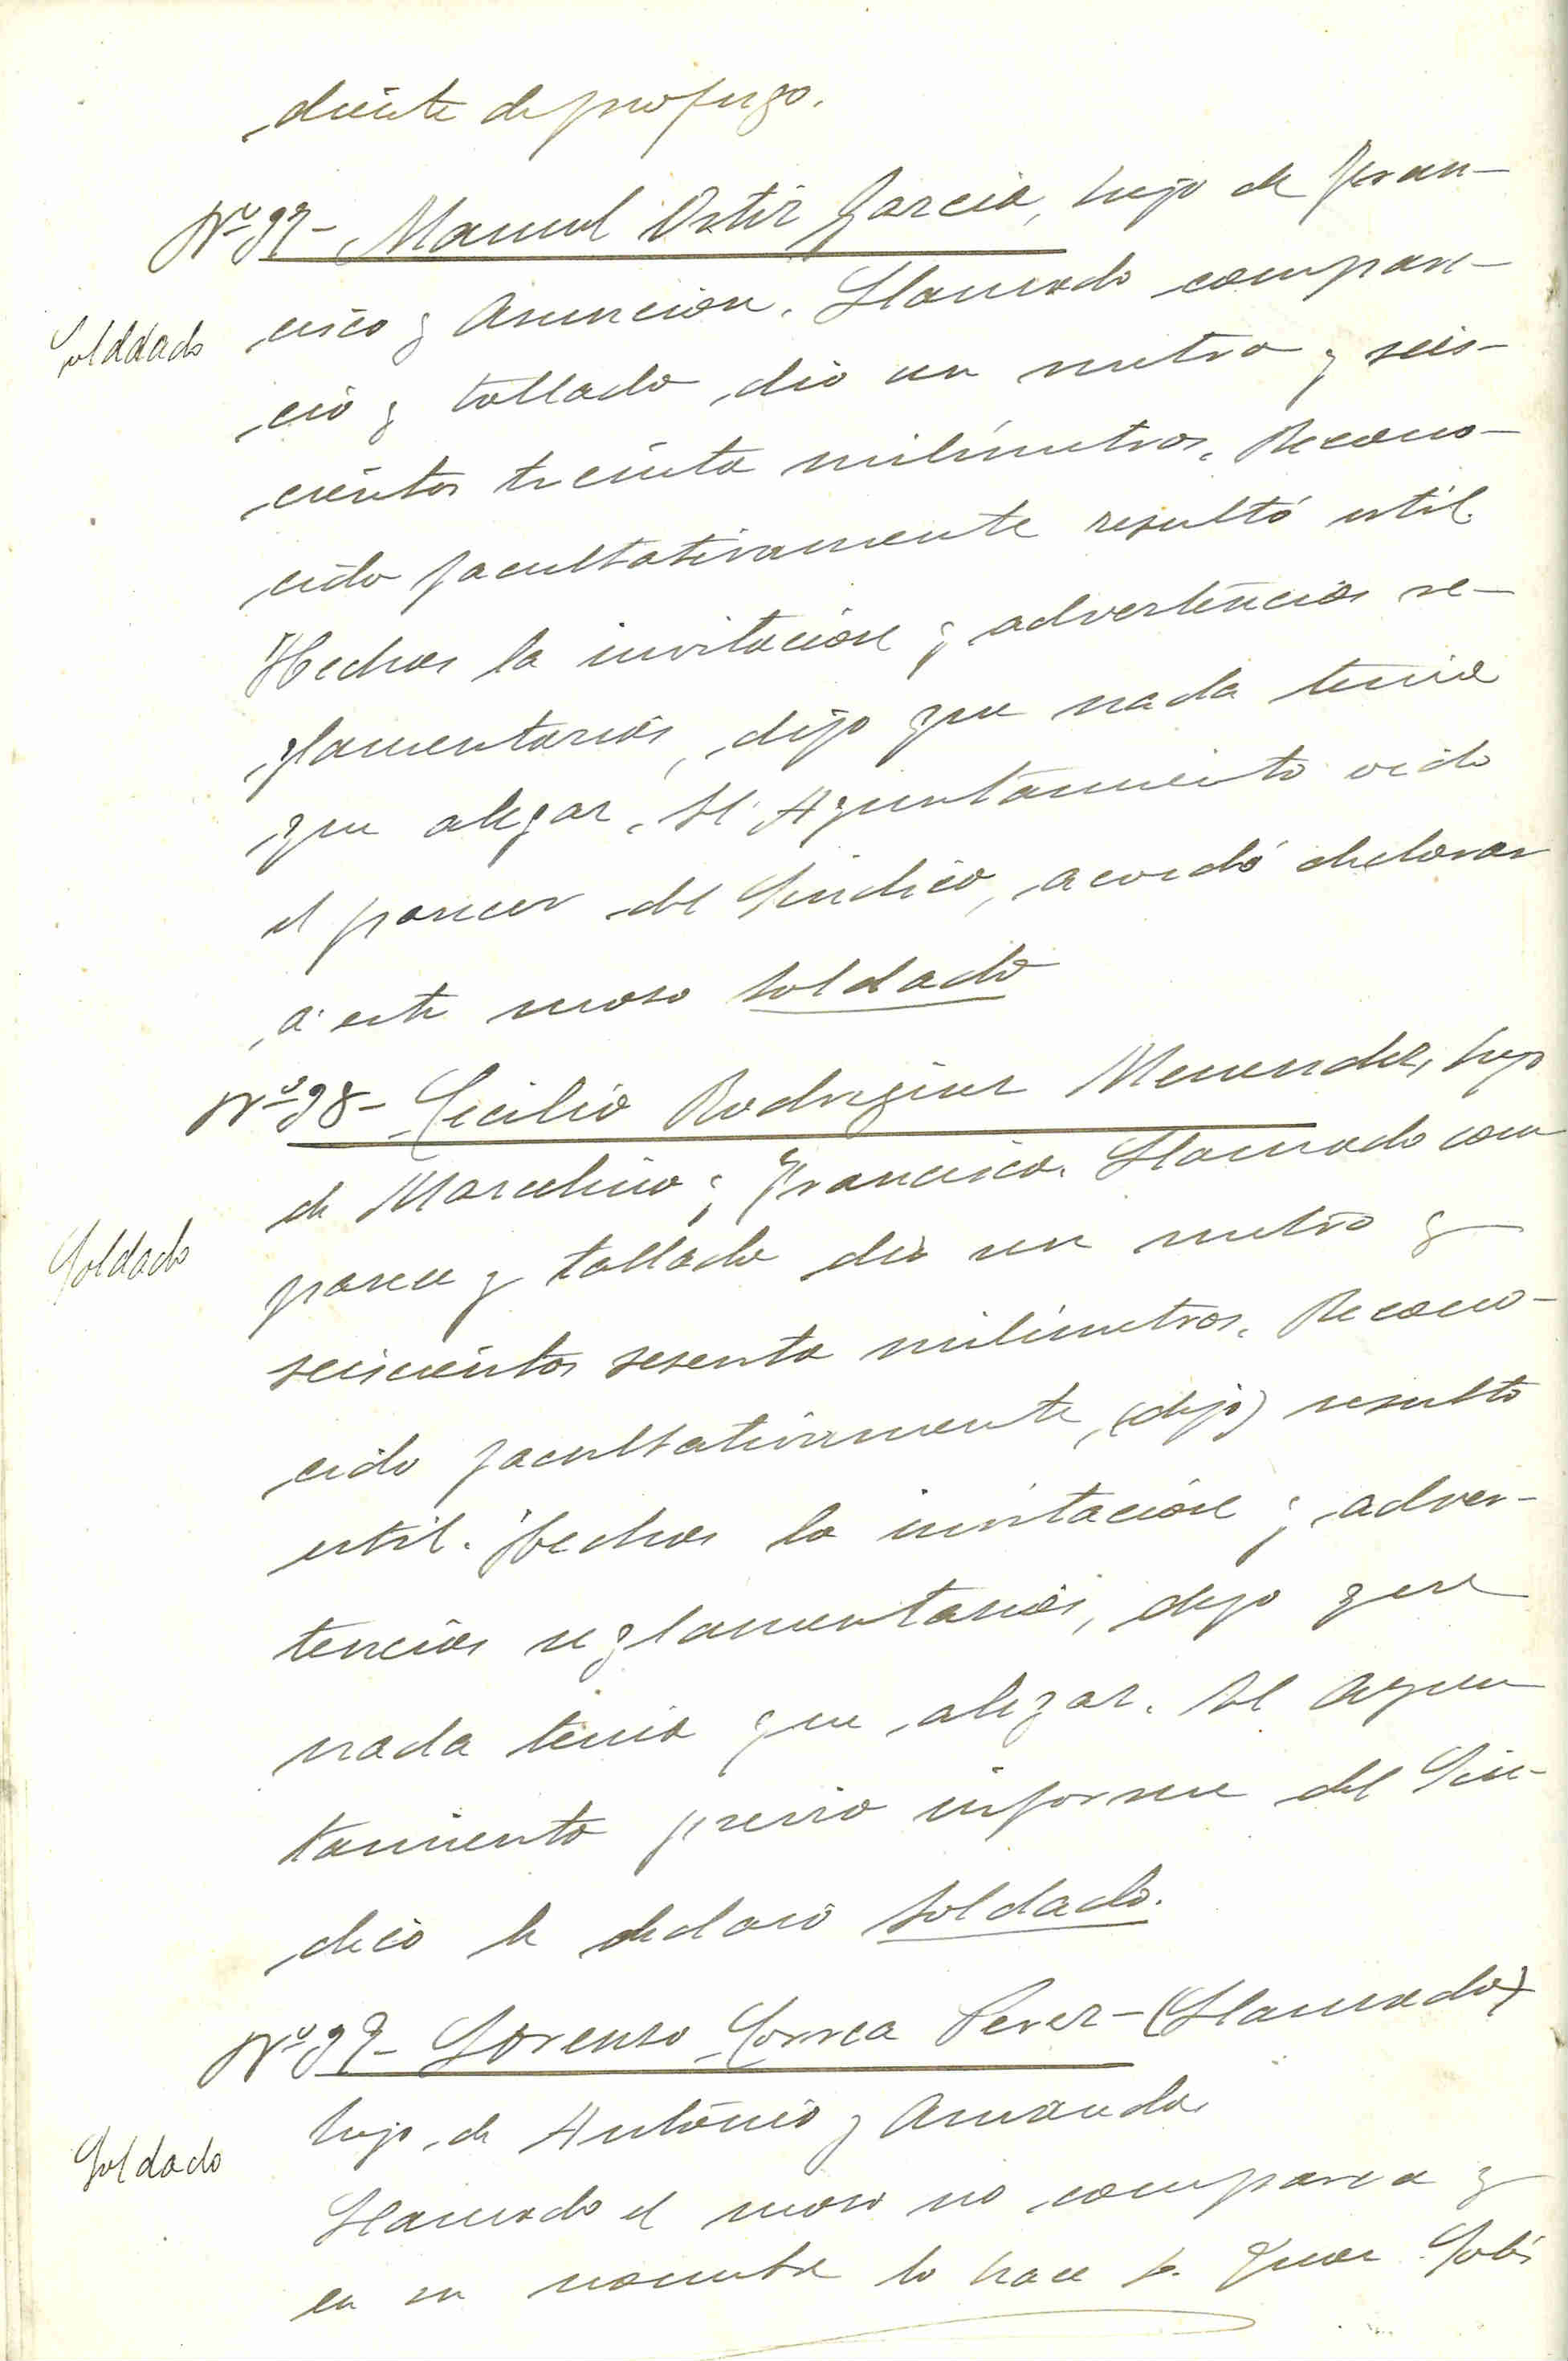 diente de profugo.
Nº 37- Manuel Ortiz Garcia, hijo de Fran-
Solddado
cisco y Asuncion. Llamado compare-
ció y tallado dió un metro y seis-
cientos treinta milimetros. Recono-
cido facultativamente resultó util.
Hechas la invitacion y advertencias re-
glamentarias, dijo que nada tenia
que alegar. El Ayuntamiento oido
el parecer del Sindico, acordó declarar
a este moso soldado
Nº 38- Cecilio Rodriguez Menendez, hijo
de Marcelino y Francisca. Llamado com
Soldado
parece y tallado dió un metro y
seiscientos sesenta milimetros. Recono-
cido facultativamente, (dijo) resulto
util. Hechas la invitacion y adver-
tencias reglamentarias, dijo que
nada tenia que alegar. El Ayun
tamiento previo informe del Sin-
dico le declaró soldado.
Nº 39- Lorenso Correa Perez - (Llamado)
hijo de Antonio y Amanda.
Soldado
Llamado el moso no comparece y
en su nombre lo hace D. Juan